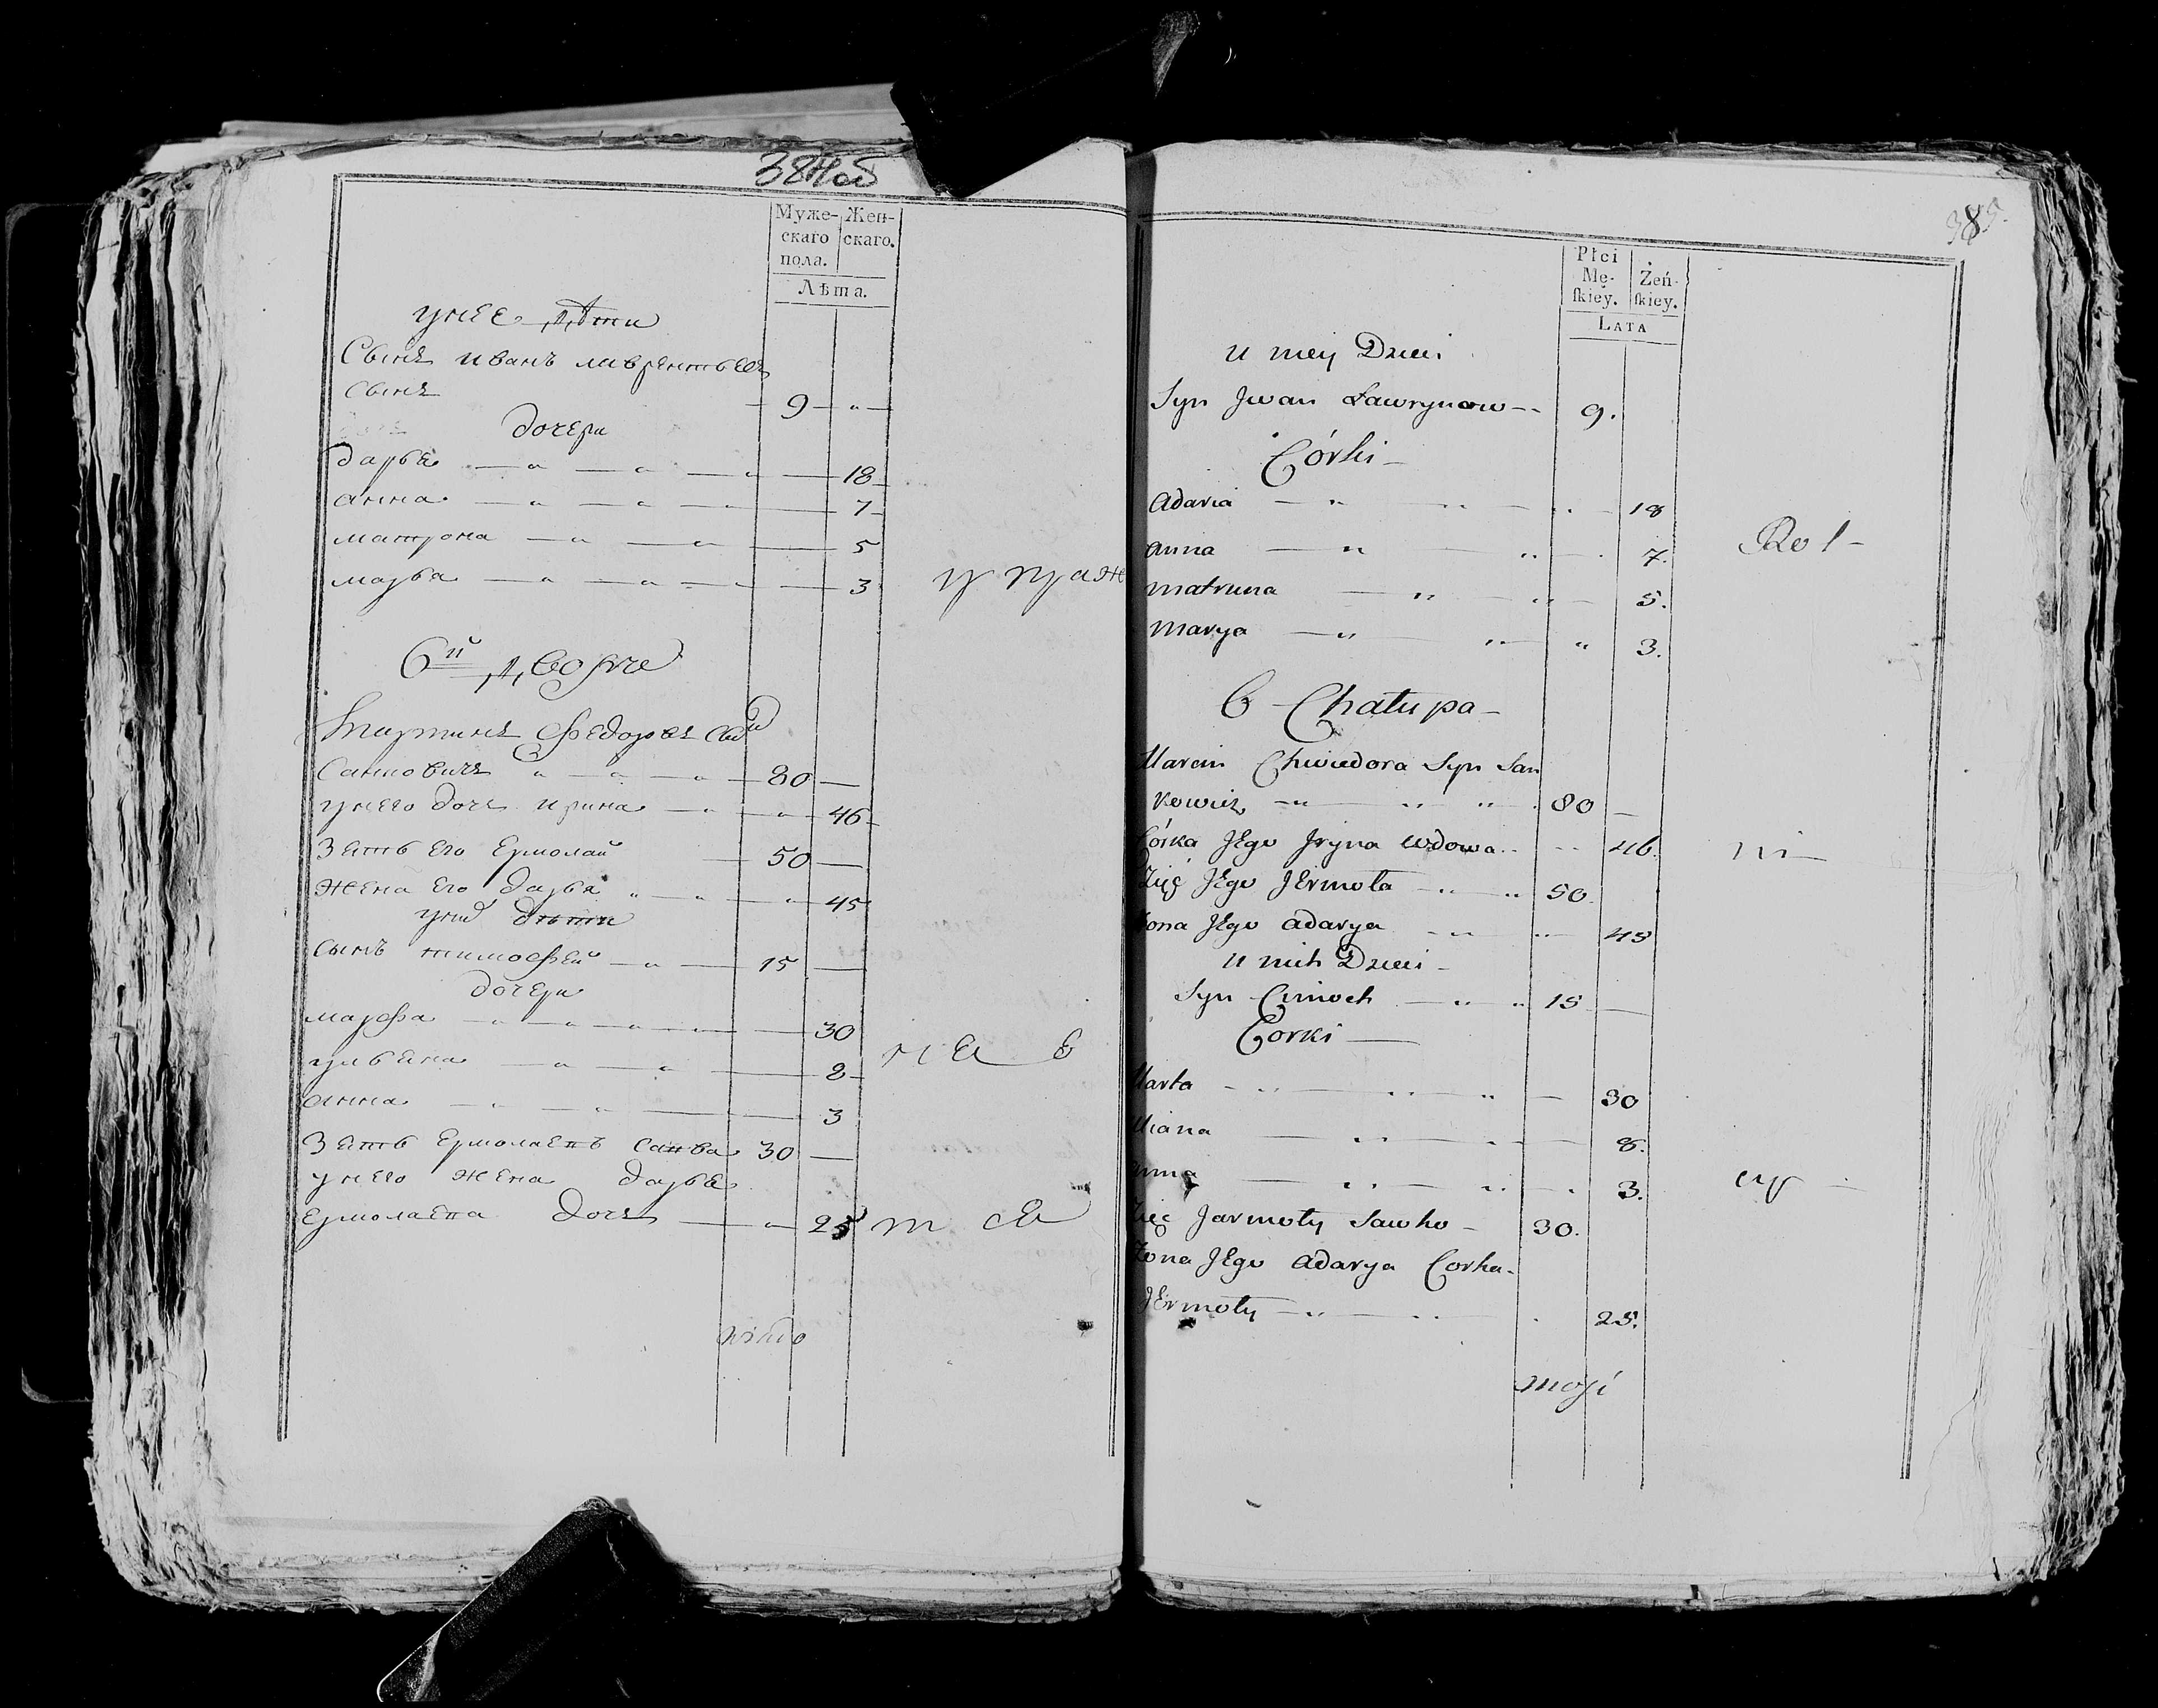 384об
Муже- Жен-
скаго скаго.
пола.
Лѣта.
у нее дѣти
Сынъ иванъ лаврентьевъ
сынъ 9
дочери
дарья 18
анна 7
матрона 5
марья 3
упраж
6й дворъ
мартинъ Федоровъ сынъ
Санковичъ 80
у него дочь ирина 46
Зять его Ермолай 50
жена его дарья 45
у них дѣти
сынъ тимофей 15
дочери
марфа 30
ульяна 8
анна 3
няе
Зять Ермолаевъ савка 30
у него жена дарья
Ермолаева дочь 25
тся
385.
Płci
Mę- Żeń-
ſkiey. ſkiey.
LATA
u niey Dzieci
Syn Jwan Ławrynow 9.
Córki
Adaria 18
Anna 7.
Matruna 5.
Marya 3.
Rol-
6 Chałupa
Marcin Chwiedora Syn San
kowicz 80
Córka Jego Jryna wdowa 46.
ni-
Zięć Jego Jermoła 50.
Żona Jego Adarya 45
u nich Dzieci
Syn Cimoch 15
Corki
Marta 30
Uliana 8.
Anna 3.
cy
Zięć Jarmoły Sawko 30.
Żona Jego Adarya Corka
Jermoły 25.